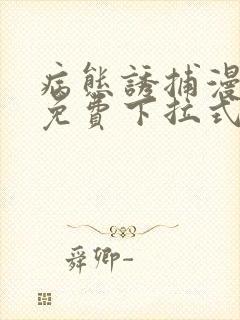 病態誘捕漫
免費下拉式
舜卿-